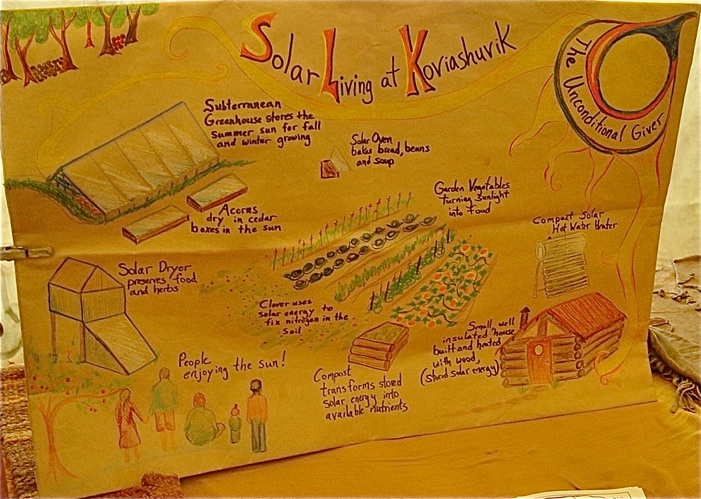 Solar Living at Koviashuvik
The Unconditional Giver
Subterranean
Greenhouse stores the
Summer sun for fall
and winter growing
Solar Oven
bakes bread, beans
and soup
Garden Vegetables
turning sunlight
into food
Acorns
dry in cedar
boxes in the sun
Compost Solar
Hot Water Heater
Solar Dryor
preserves food
and herbs
Clover uses
solar energy to
fix nitrogen in the
soil
Small, well
insulated house
built and heated
with wood,
(stored solar energy)
People
enjoying the sun!
Compost
transforms stored
solar energy into
available nutrients